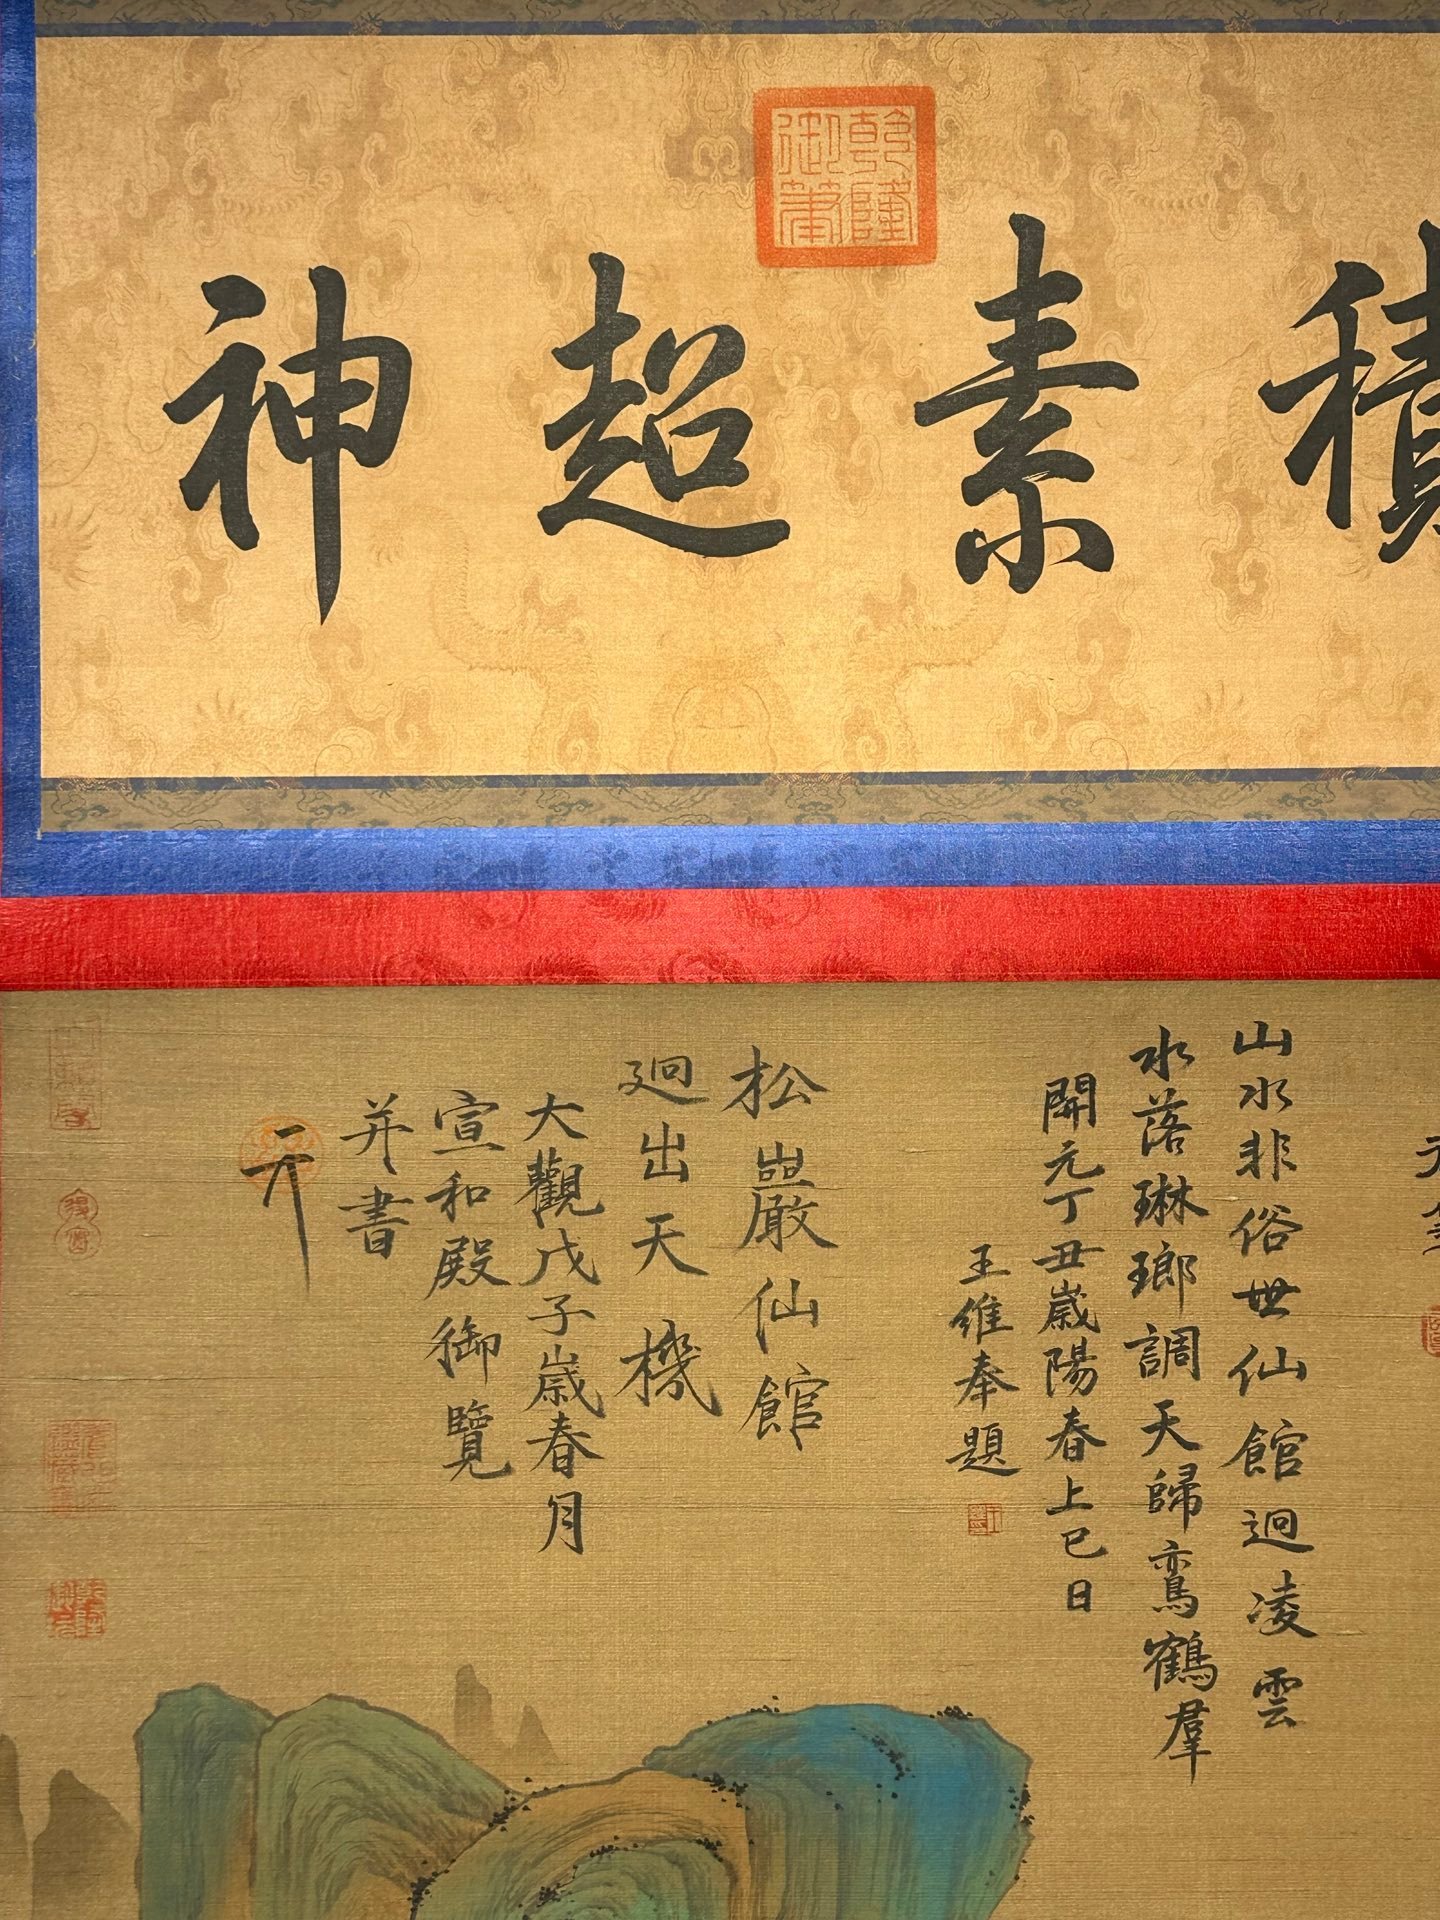 積素超神
乾隆
御筆
山水非俗世仙館迥凌雲
水落琳瑯調天歸鸞鶴羣
開元丁丑歲陽春上巳日
王維奉題
松巖仙館
迴出天機
大觀戊子歲春月
宣和殿御覽
并書